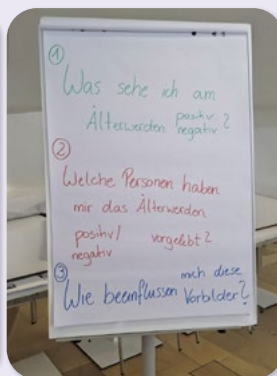 1
Was sehe ich am
Älterwerden positiv negativ?
2
Welche Personen haben
mir das Älterwerden
positiv/ vorgelebt?
negativ
3
Wie beeinflussen mich diese Vorbilder?